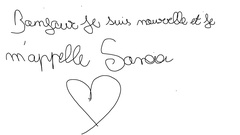 Bonjour je suis nouvelle et je
m'appelle Sanaa